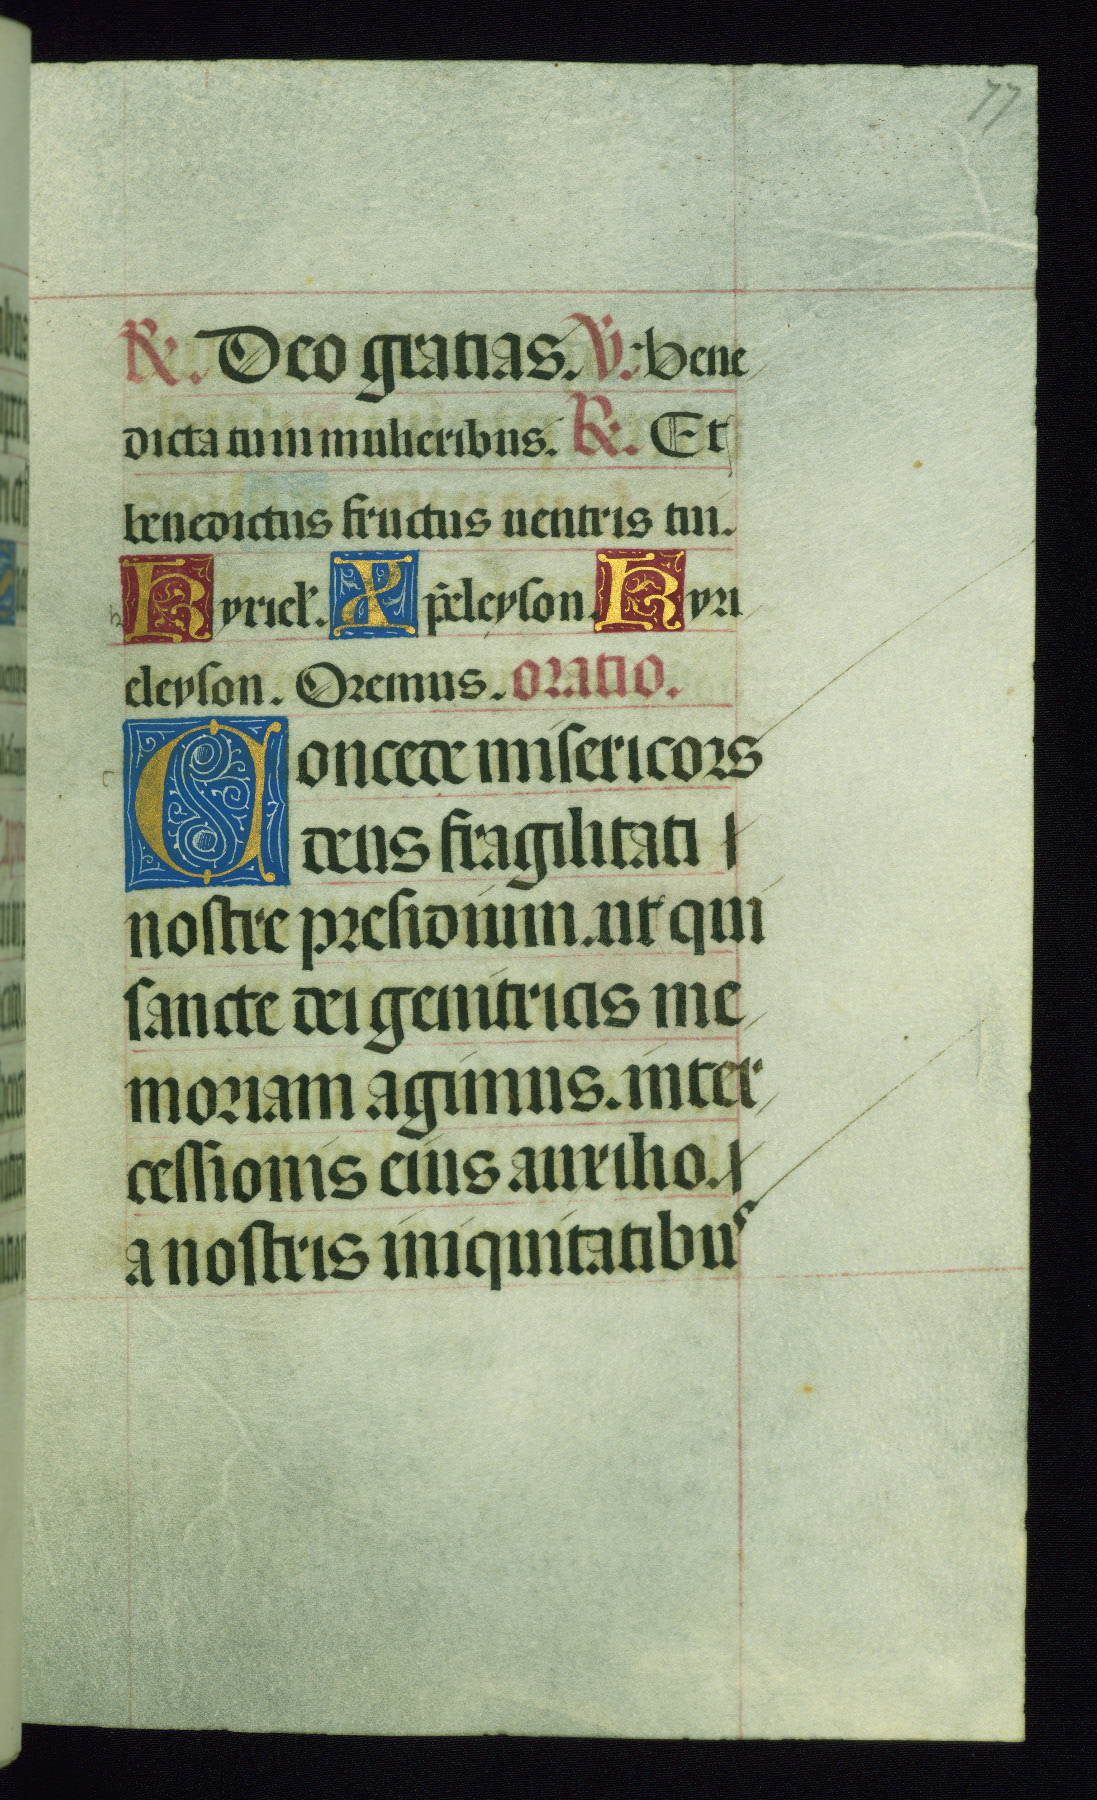 77
R. Deo gratias. V. Bene
dicta tu in mulieribus. R. Et
benedictus fructus uentris tui.
Kyriel̃. Xp̃eleyson. Kyri
eleyson. Oremus. oratio.
Concede misericors
deus fragilitati
nostre presidium. ut qui
sancte dei genitricis me
moriam agimus. inter
cessionis eius auxilio.
a nostris iniquitatibus